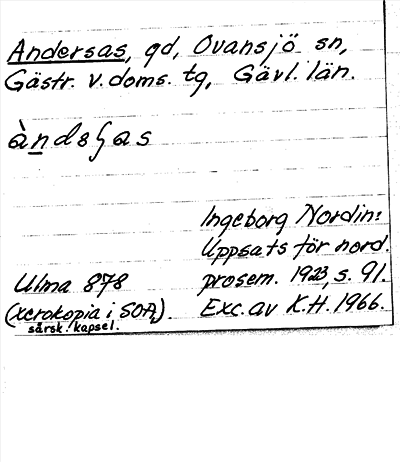 Andersas, gd, Ovansjö sn,
Gästr. v. doms. tg, Gävl. län.
Ingeborg Nordin:
Uppsats för nord.
Ulma 878 prosem. 1923, s. 91.
(xerokopia i SOA, Exc. av K.H. 1966.
särsk. kapsel.).